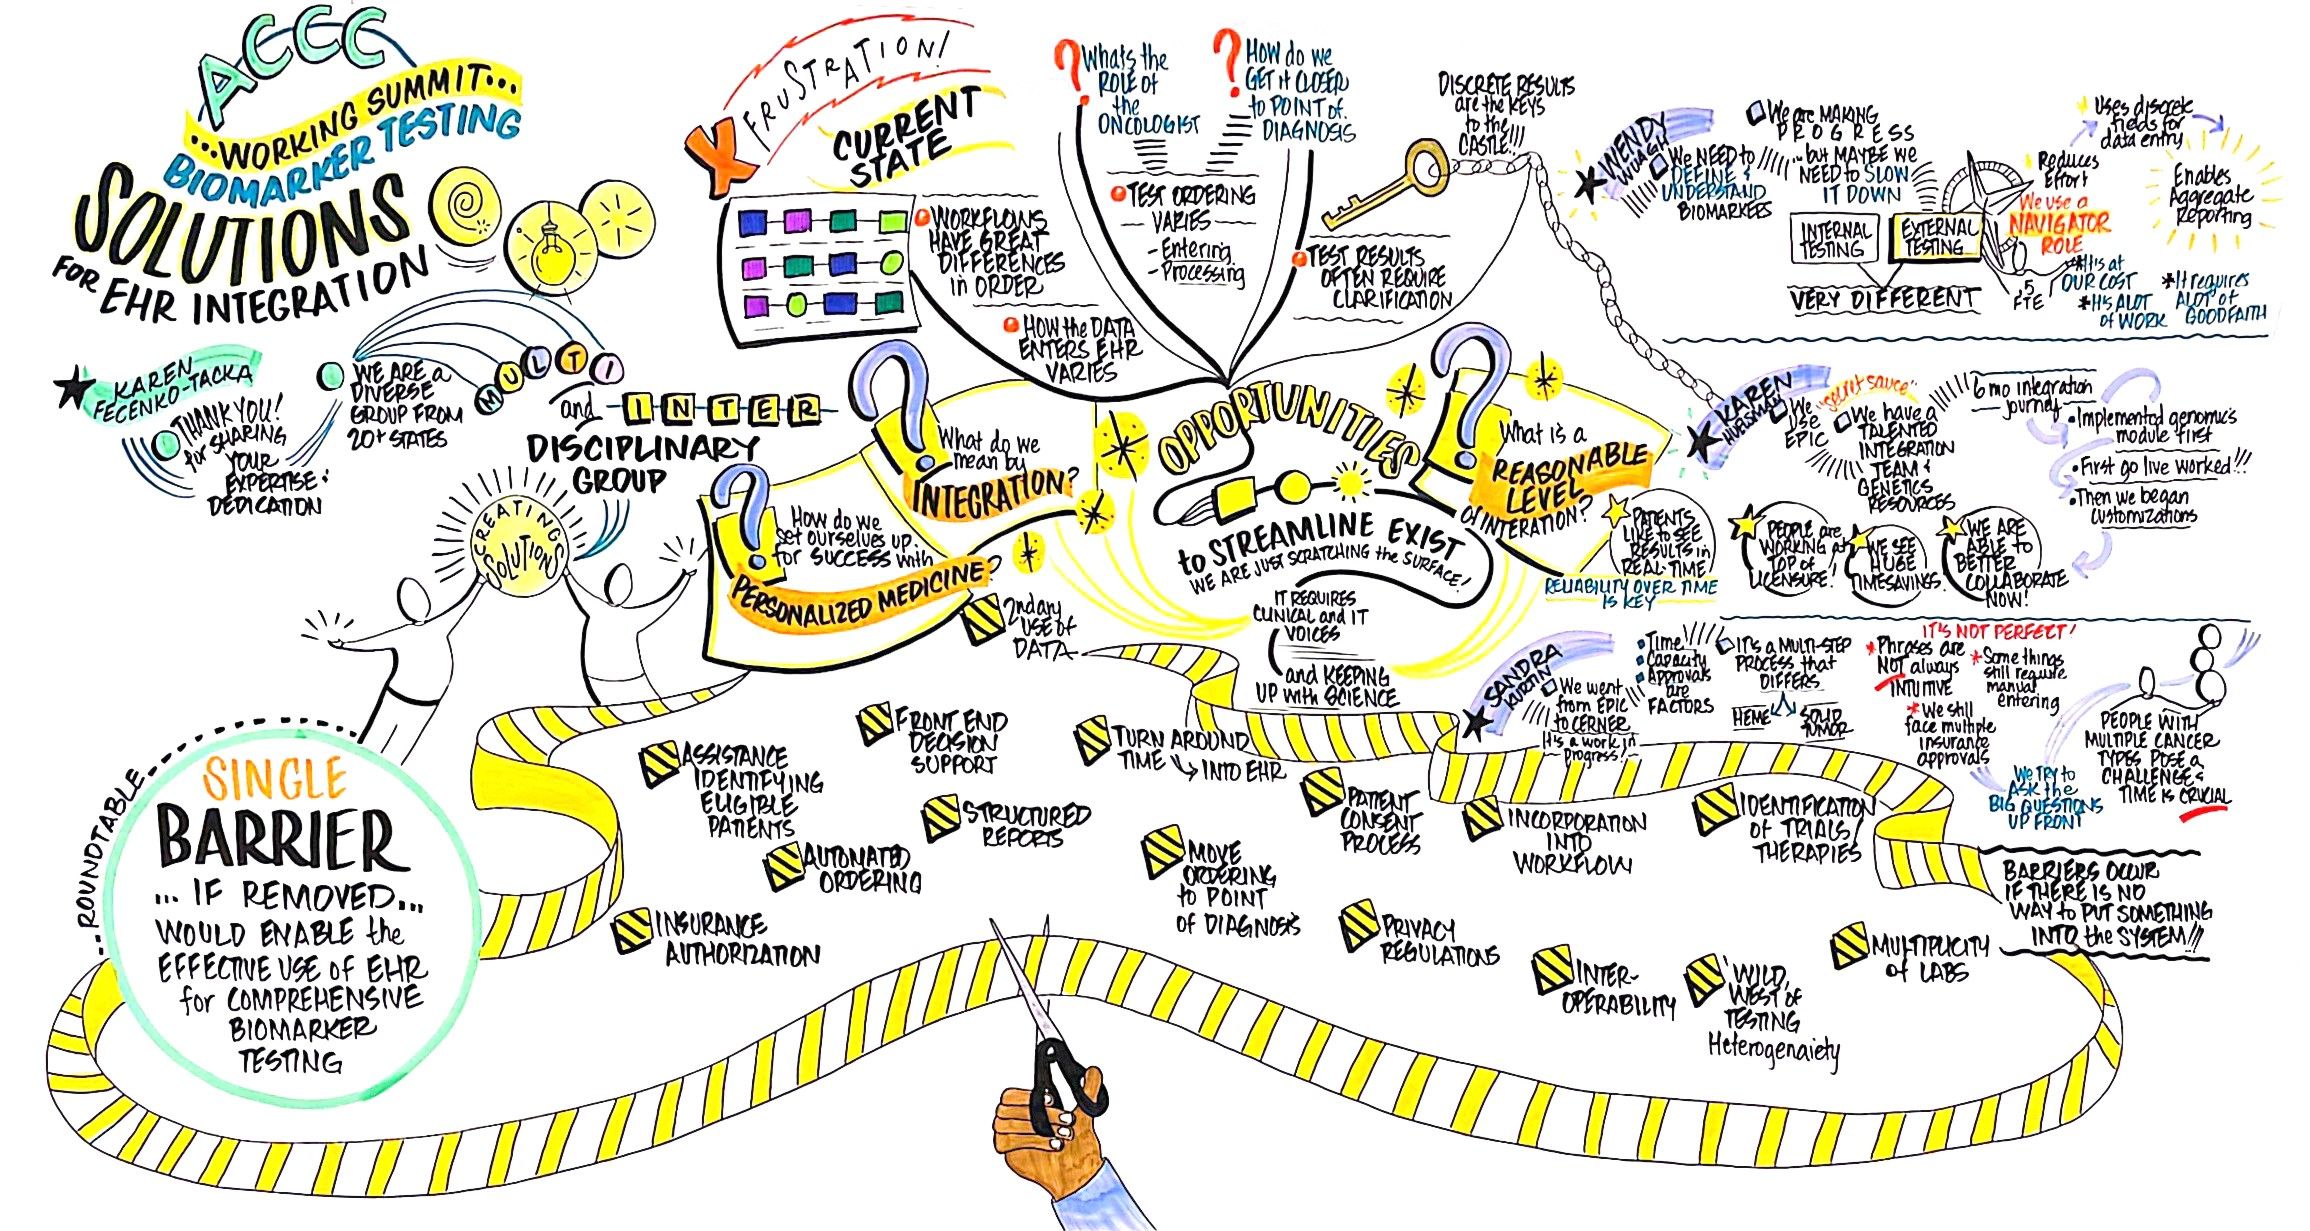 ACCC
...WORKING SUMMIT...
BIOMARKER TESTING
SOLUTIONS
FOR EHR INTEGRATION
KAREN
FECENKO-TACKA
THANK YOU!
for SHARING
YOUR
EXPERTISE &
DEDICATION
WE ARE a
DIVERSE
GROUP FROM
20+ STATES
MULTI
and INTER
DISCIPLINARY
GROUP
CREATING
SOLUTIONS
X FRUSTRATION!
CURRENT
STATE
WORKFLOWS
HAVE GREAT
DIFFERENCES
in ORDER
HOW the DATA
ENTERS EHR
VARIES
? Whats the
ROLE of
the
ONCOLOGIST
? HOW do we
GET it CLOSER
to POINT of
DIAGNOSIS
TEST ORDERING
VARIES
- Entering
- Processing
TEST RESULTS
OFTEN REQUIRE
CLARIFICATION
DISCRETE RESULTS
are the KEYS
to the
CASTLE!!!
? How do we
set ourselves up
for SUCCESS with
PERSONALIZED MEDICINE?
? What do we
mean by
INTEGRATION?
OPPORTUNITIES
to STREAMLINE EXIST
WE ARE JUST SCRATCHING the SURFACE!
IT REQUIRES
CLINICAL and IT
VOICES
and KEEPING
UP with SCIENCE
? What is a
REASONABLE
LEVEL
of INTERATION?
WENDY
WAUGH
We NEED to
DEFINE &
UNDERSTAND
BIOMARKERS
We are MAKING
PROGRESS
...but MAYBE WE
NEED to SLOW
IT DOWN
INTERNAL
TESTING
EXTERNAL
TESTING
VERY DIFFERENT
Uses discrete
fields for
data entry
Reduces
Effort
Enables
Aggregate
Reporting
We use a
NAVIGATOR
ROLE
.5
FTE
*It's at
OUR COST
*It's ALOT
of WORK
*It requires
ALOT of
GOOD FAITH
KAREN
HUELSMAN
We
USE
EPIC
"secret sauce"
We have a
TALENTED
INTEGRATION
TEAM &
GENETICS
RESOURCES
6 mo integration
journey
• Implemented genomics
module first
• First go live worked!!!
• Then we began
customizations
PATENTS
LIKE to SEE
RESULTS in
REAL-TIME
RELIABILITY OVER TIME
IS KEY
PEOPLE are
WORKING at
TOP of
LICENSURE!
WE SEE
HUGE
TIMESAVINGS
WE ARE
ABLE to
BETTER
COLLABORATE
NOW!
SANDRA
KURTIN
We went
from EPIC
to CERNER
It's a work in
progress!
• Time
• Capacity
• Approvals
are
FACTORS
IT'S a MULTI-STEP
PROCESS that
DIFFERS
HEME
SOLID
TUMOR
IT'S NOT PERFECT!
* Phrases are
NOT always
INTUITIVE
* Some things
still require
manual
entering
* We still
face multiple
insurance
approvals
We TRY to
ASK the
BIG QUESTIONS
UP FRONT
PEOPLE WITH
MULTIPLE CANCER
TYPES POSE a
CHALLENGE &
TIME is CRUCIAL
ROUNDTABLE
SINGLE
BARRIER
... IF REMOVED...
WOULD ENABLE the
EFFECTIVE USE of EHR
for COMPREHENSIVE
BIOMARKER
TESTING
2ndary
USE of
DATA
ASSISTANCE
IDENTIFYING
ELIGIBLE
PATIENTS
FRONT END
DECISION
SUPPORT
TURN AROUND
TIME INTO EHR
AUTOMATED
ORDERING
STRUCTURED
REPORTS
INSURANCE
AUTHORIZATION
MOVE
ORDERING
to POINT
of DIAGNOSIS
PATIENT
CONSENT
PROCESS
INCORPORATION
INTO
WORKFLOW
IDENTIFICATION
of TRIALS/
THERAPIES
PRIVACY
REGULATIONS
INTER-
OPERABILITY
'WILD,
WEST of
TESTING
Heterogenaiety
MULTIPLICITY
of LABS
BARRIERS OCCUR
IF THERE IS NO
WAY to PUT SOMETHING
INTO the SYSTEM!!!